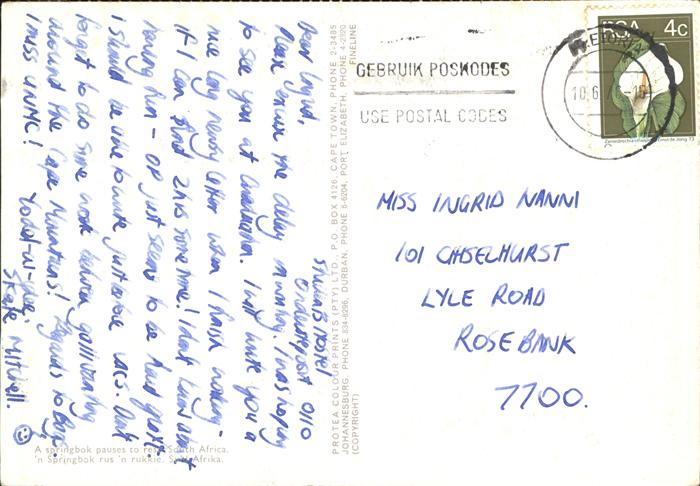 Struben's Hostel
Onderstepoort 0110
Dear Ingrid,
Please excuse the delay in writing. I was hoping
to see you at Onderstepoort. I will write you a
nice long newsy letter when I finish working -
if I can find 2 lids some time! I don't know about
having fun - or just seems to be hard graft.
I should be able to write just before vacs. Don't
forget to do some work between gallivanting
around the Cape Mountains! Regards to
I miss
Yodel-u-
Mitchell.
A springbok pauses to rest, South Africa.
'n Springbok rus 'n rukkie, Suid-Afrika.
PROTEA COLOUR PRINTS (PTY) LTD., P.O. BOX 4126, CAPE TOWN, PHONE 2-3485
JOHANNESBURG, PHONE 834-8296, DURBAN, PHONE 6-6204, PORT ELIZABETH, PHONE 4-2120
(COPYRIGHT)
FINELINE
GEBRUIK POSKODES
USE POSTAL CODES
10
RSA 4c
MISS INGRID NANNI
101 CHISELHURST
LYLE ROAD
ROSEBANK
7700.